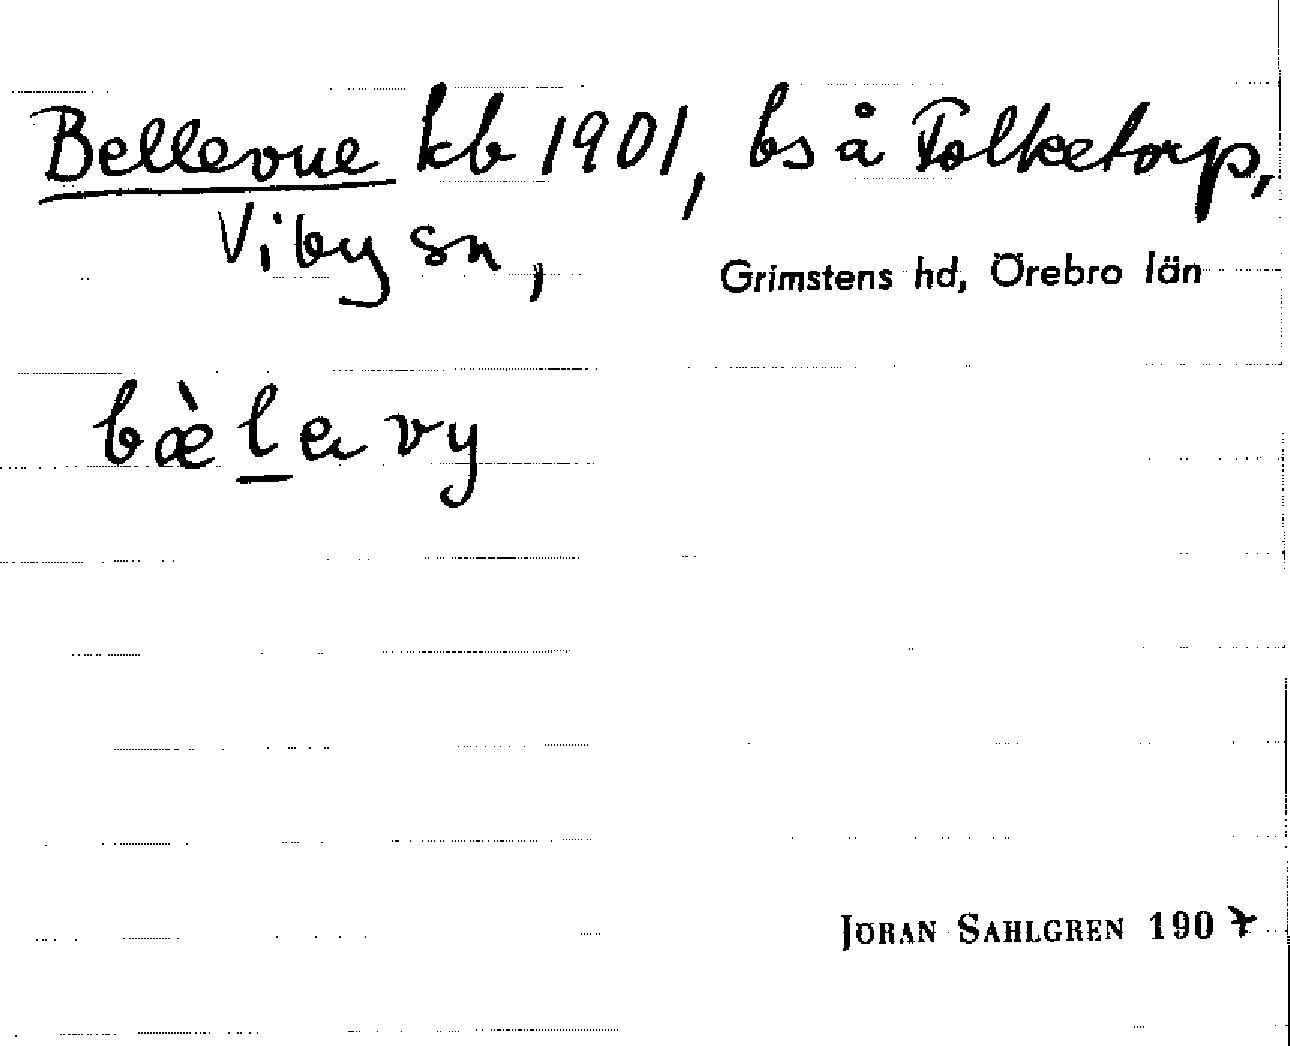 Bellevue kb 1901, bs å Folketorp,
Viby sn,
Grimstens hd, Örebro län
bæ̀l̲e vy
JÖRAN SAHLGREN 1907